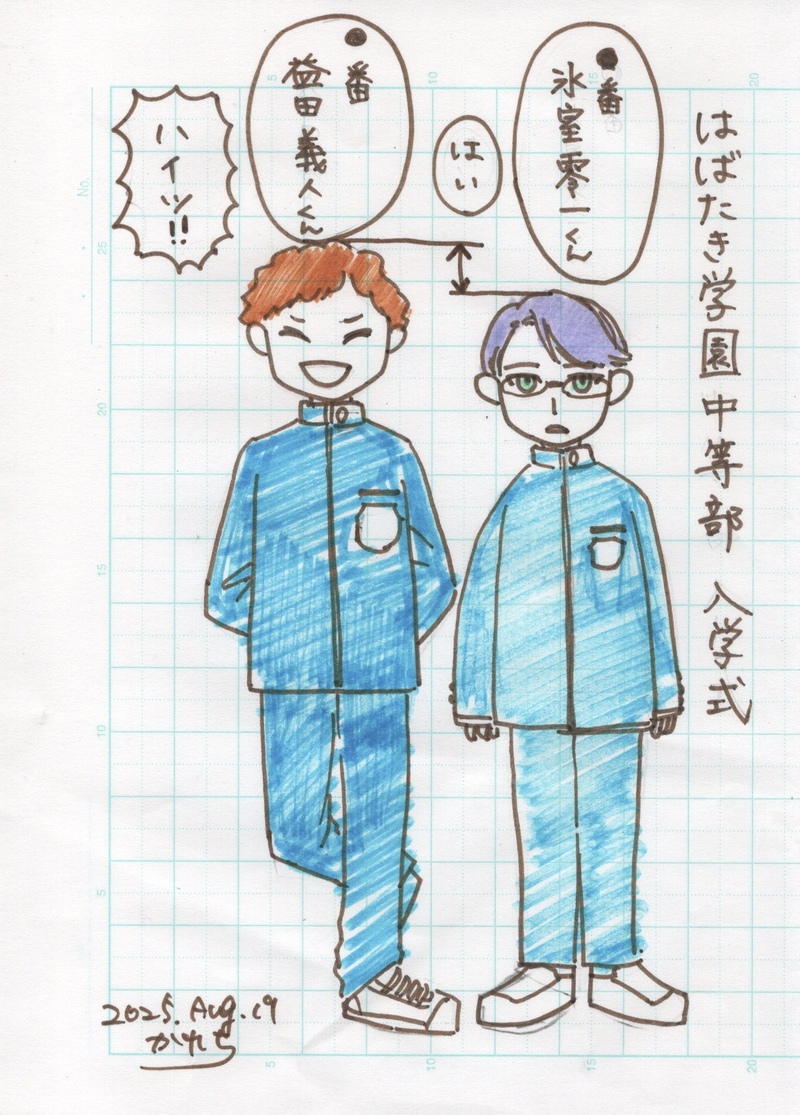 はばたき学園中等部 入学式
●番
氷室零一くん
はい
●番
益田義人くん
ハイッ!!
2025. Aug. 19
かれち
No.
5
10
15
20
25
20
15
10
5
5
10
15
20